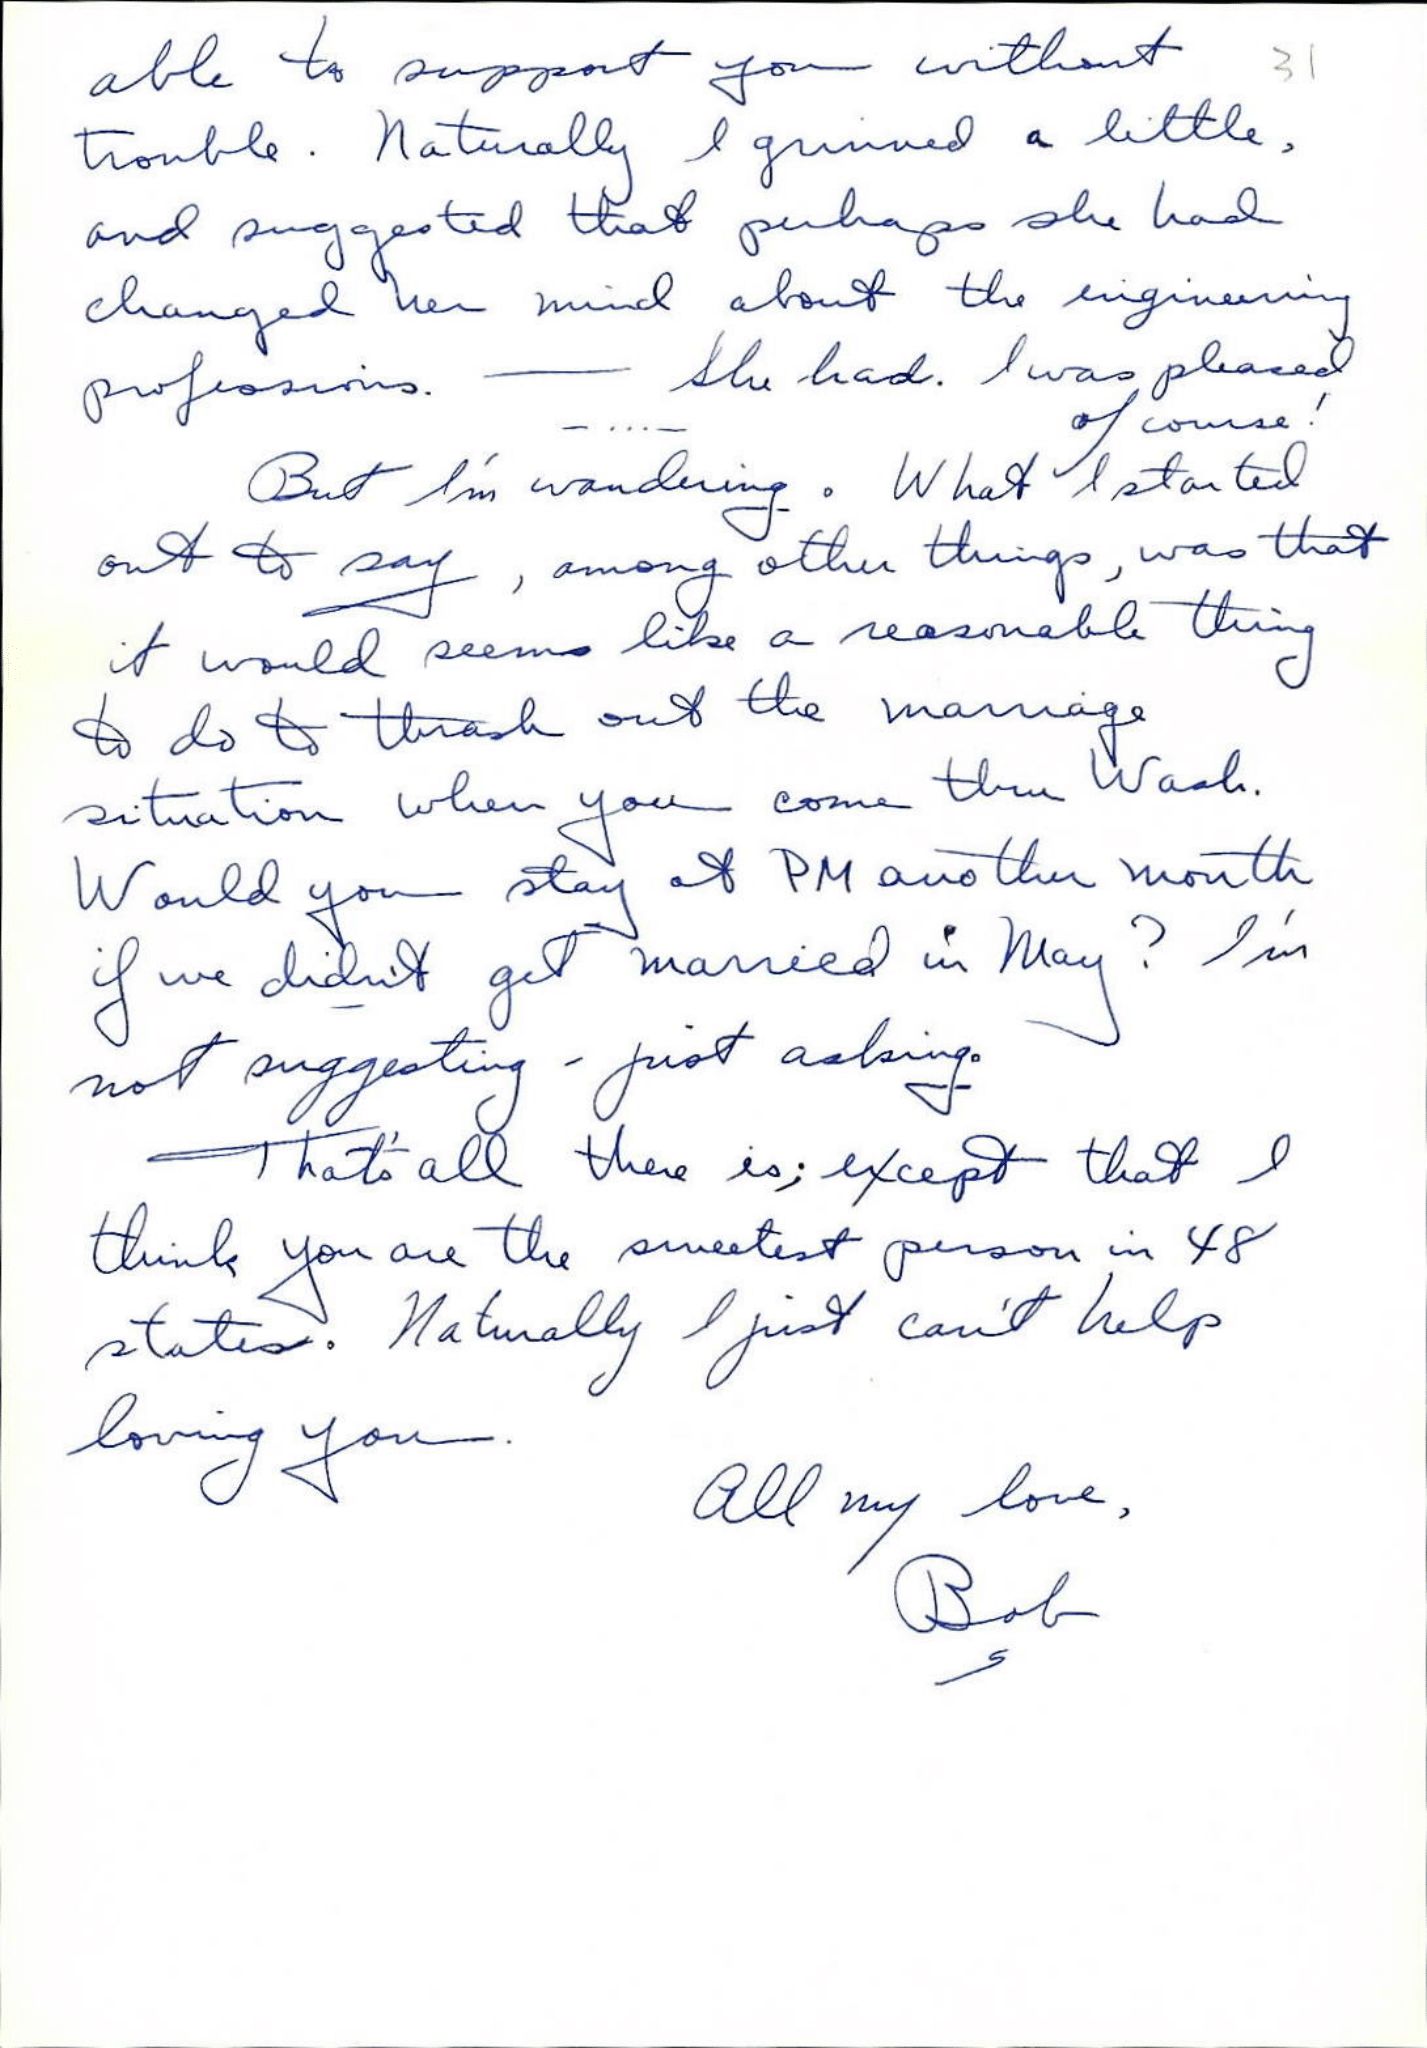 31
able to support you without
trouble. Naturally I grinned a little,
and suggested that perhaps she had
changed her mind about the engineering
professions. —— She had. I was pleased
of course!
— ... —
But I'm wandering. What I started
out to say, among other things, was that
it would seems like a reasonable thing
to do to thrash out the marriage
situation when you come thru Wash.
Would you stay at PM another month
if we didn't get married in May? I'm
not suggesting - just asking.
That's all there is; except that I
think you are the sweetest person in 48
states. Naturally I just can't help
loving you.
All my love,
Bob